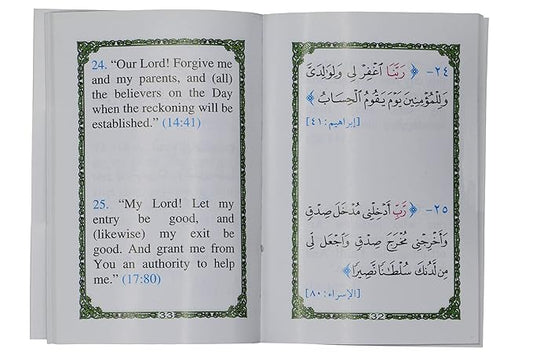 24. “Our Lord! Forgive me
and my parents, and (all)
the believers on the Day
when the reckoning will be
established.” (14:41)
25. “My Lord! Let my
entry be good, and
(likewise) my exit be
good. And grant me from
You an authority to help
me.” (17:80)
33
٢٤- ﴿ رَبَّنَا ٱغْفِرْ لِى وَلِوَٰلِدَىَّ
وَلِلْمُؤْمِنِينَ يَوْمَ يَقُومُ ٱلْحِسَابُ ﴾
[إبراهيم: ٤١]
٢٥- ﴿ رَّبِّ أَدْخِلْنِى مُدْخَلَ صِدْقٍ
وَأَخْرِجْنِى مُخْرَجَ صِدْقٍ وَٱجْعَل لِّى
مِن لَّدُنكَ سُلْطَٰنًا نَّصِيرًا ﴾
[الإسراء: ٨٠]
32